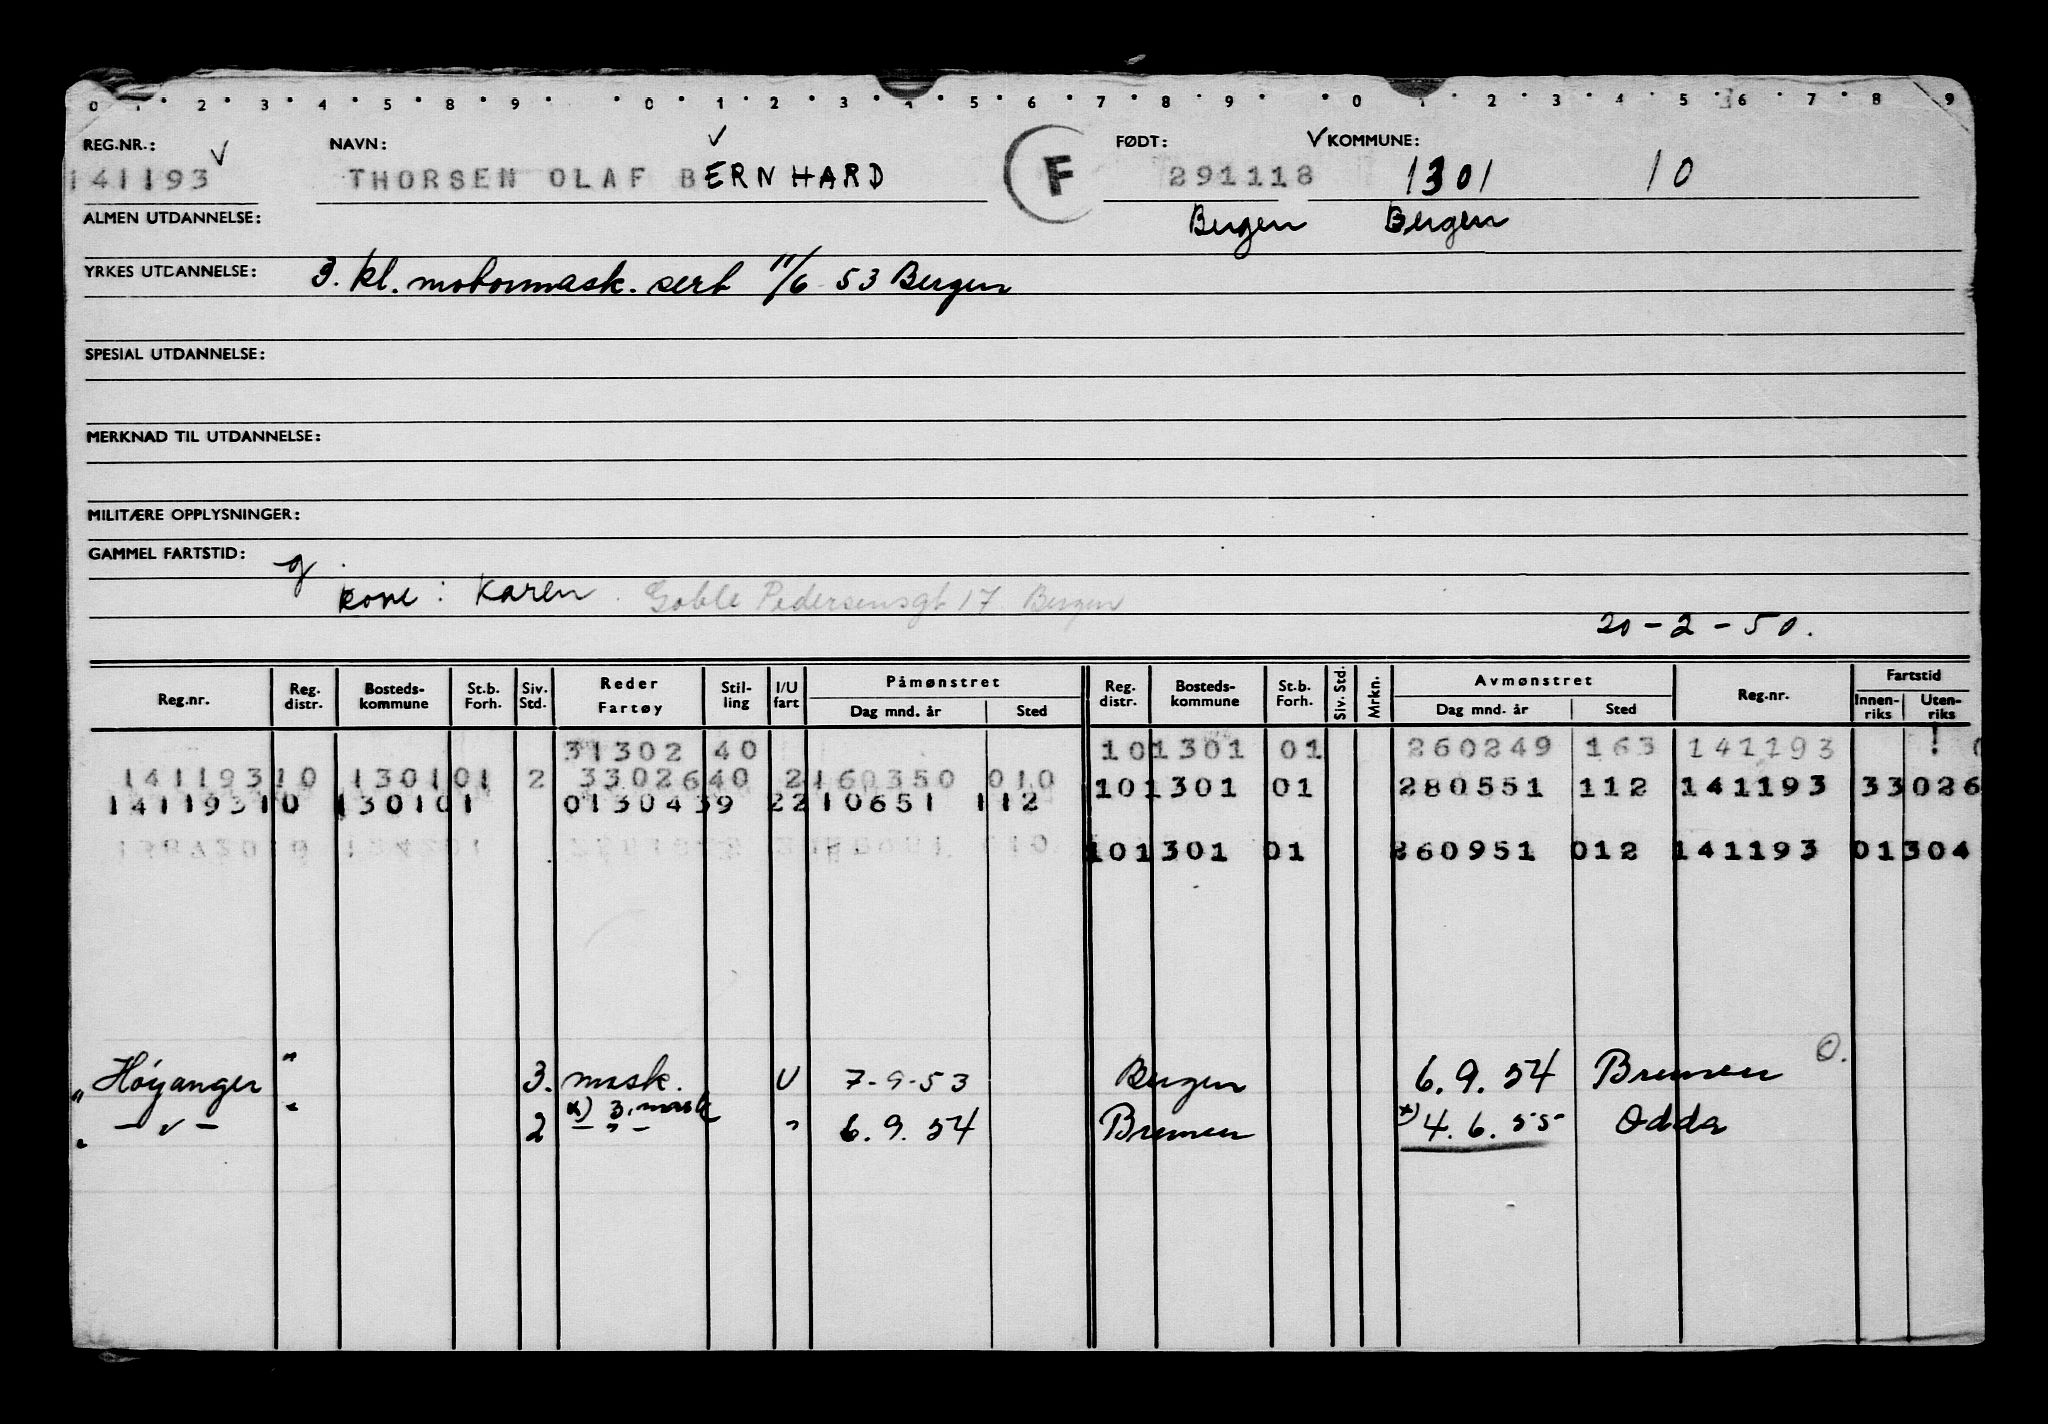 0 1 2 3 4 5 8 9 0 1 2 3 4 5 6 7 8 9 0 1 2 3 4 5 6 7 8 9
REG.NR.: NAVN: FØDT: KOMMUNE:
141193 THORSEN OLAF BERNHARD F 291118 1301 10
ALMEN UTDANNELSE: Bergen Bergen
YRKES UTDANNELSE: 3. kl. motormask. sert 11/6 53 Bergen
SPESIAL UTDANNELSE:
MERKNAD TIL UTDANNELSE:
MILITÆRE OPPLYSNINGER:
GAMMEL FARTSTID: g.
kone: Karen Goble Pedersensgt 17 Bergen
20-2-50.
Reg.nr. Reg. distr. Bosteds- kommune St.b. Forh. Siv. Std. Reder Fartøy Stil- ling I/U fart Påmønstret Dag mnd. år Sted Reg. distr. Bosteds- kommune St.b. Forh. Siv. Std. Mrkn. Avmønstret Dag mnd. år Sted Reg.nr. Fartstid Innen- riks Uten- riks
31302 40 101301 01 260249 163 141193
14119310 130101 2 3302640 2160350 010 101301 01 280551 112 141193 33026
14119310 130101 0130439 2210651 112
101301 01 260951 012 141193 01304
" Høyanger " 3. mask. U 7-9-53 Bergen 6.9.54 Bremen O.
" - v - " 2 x) 3. mask - " - " 6.9.54 Bremen x) 4.6.55 Odda